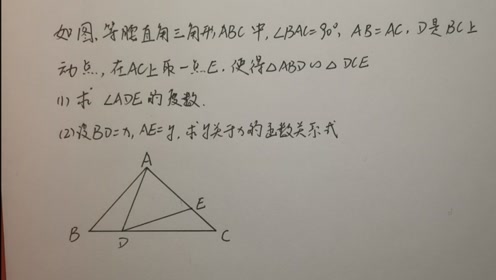 如图,等腰直角三角形ABC中,∠BAC=90°,AB=AC,D是BC上
动点,在AC上取一点E,使得△ABD∽△DCE
(1)求∠ADE的度数.
(2)设BD=x,AE=y,求y关于x的函数关系式
A
E
B D C